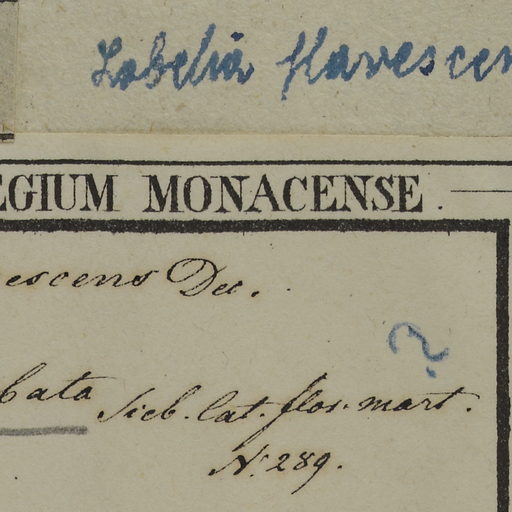 Lobelia flavescen
EGIUM MONACENSE.
escens Dec.
?
bata Sieb. cat. flor. mart.
N. 289.